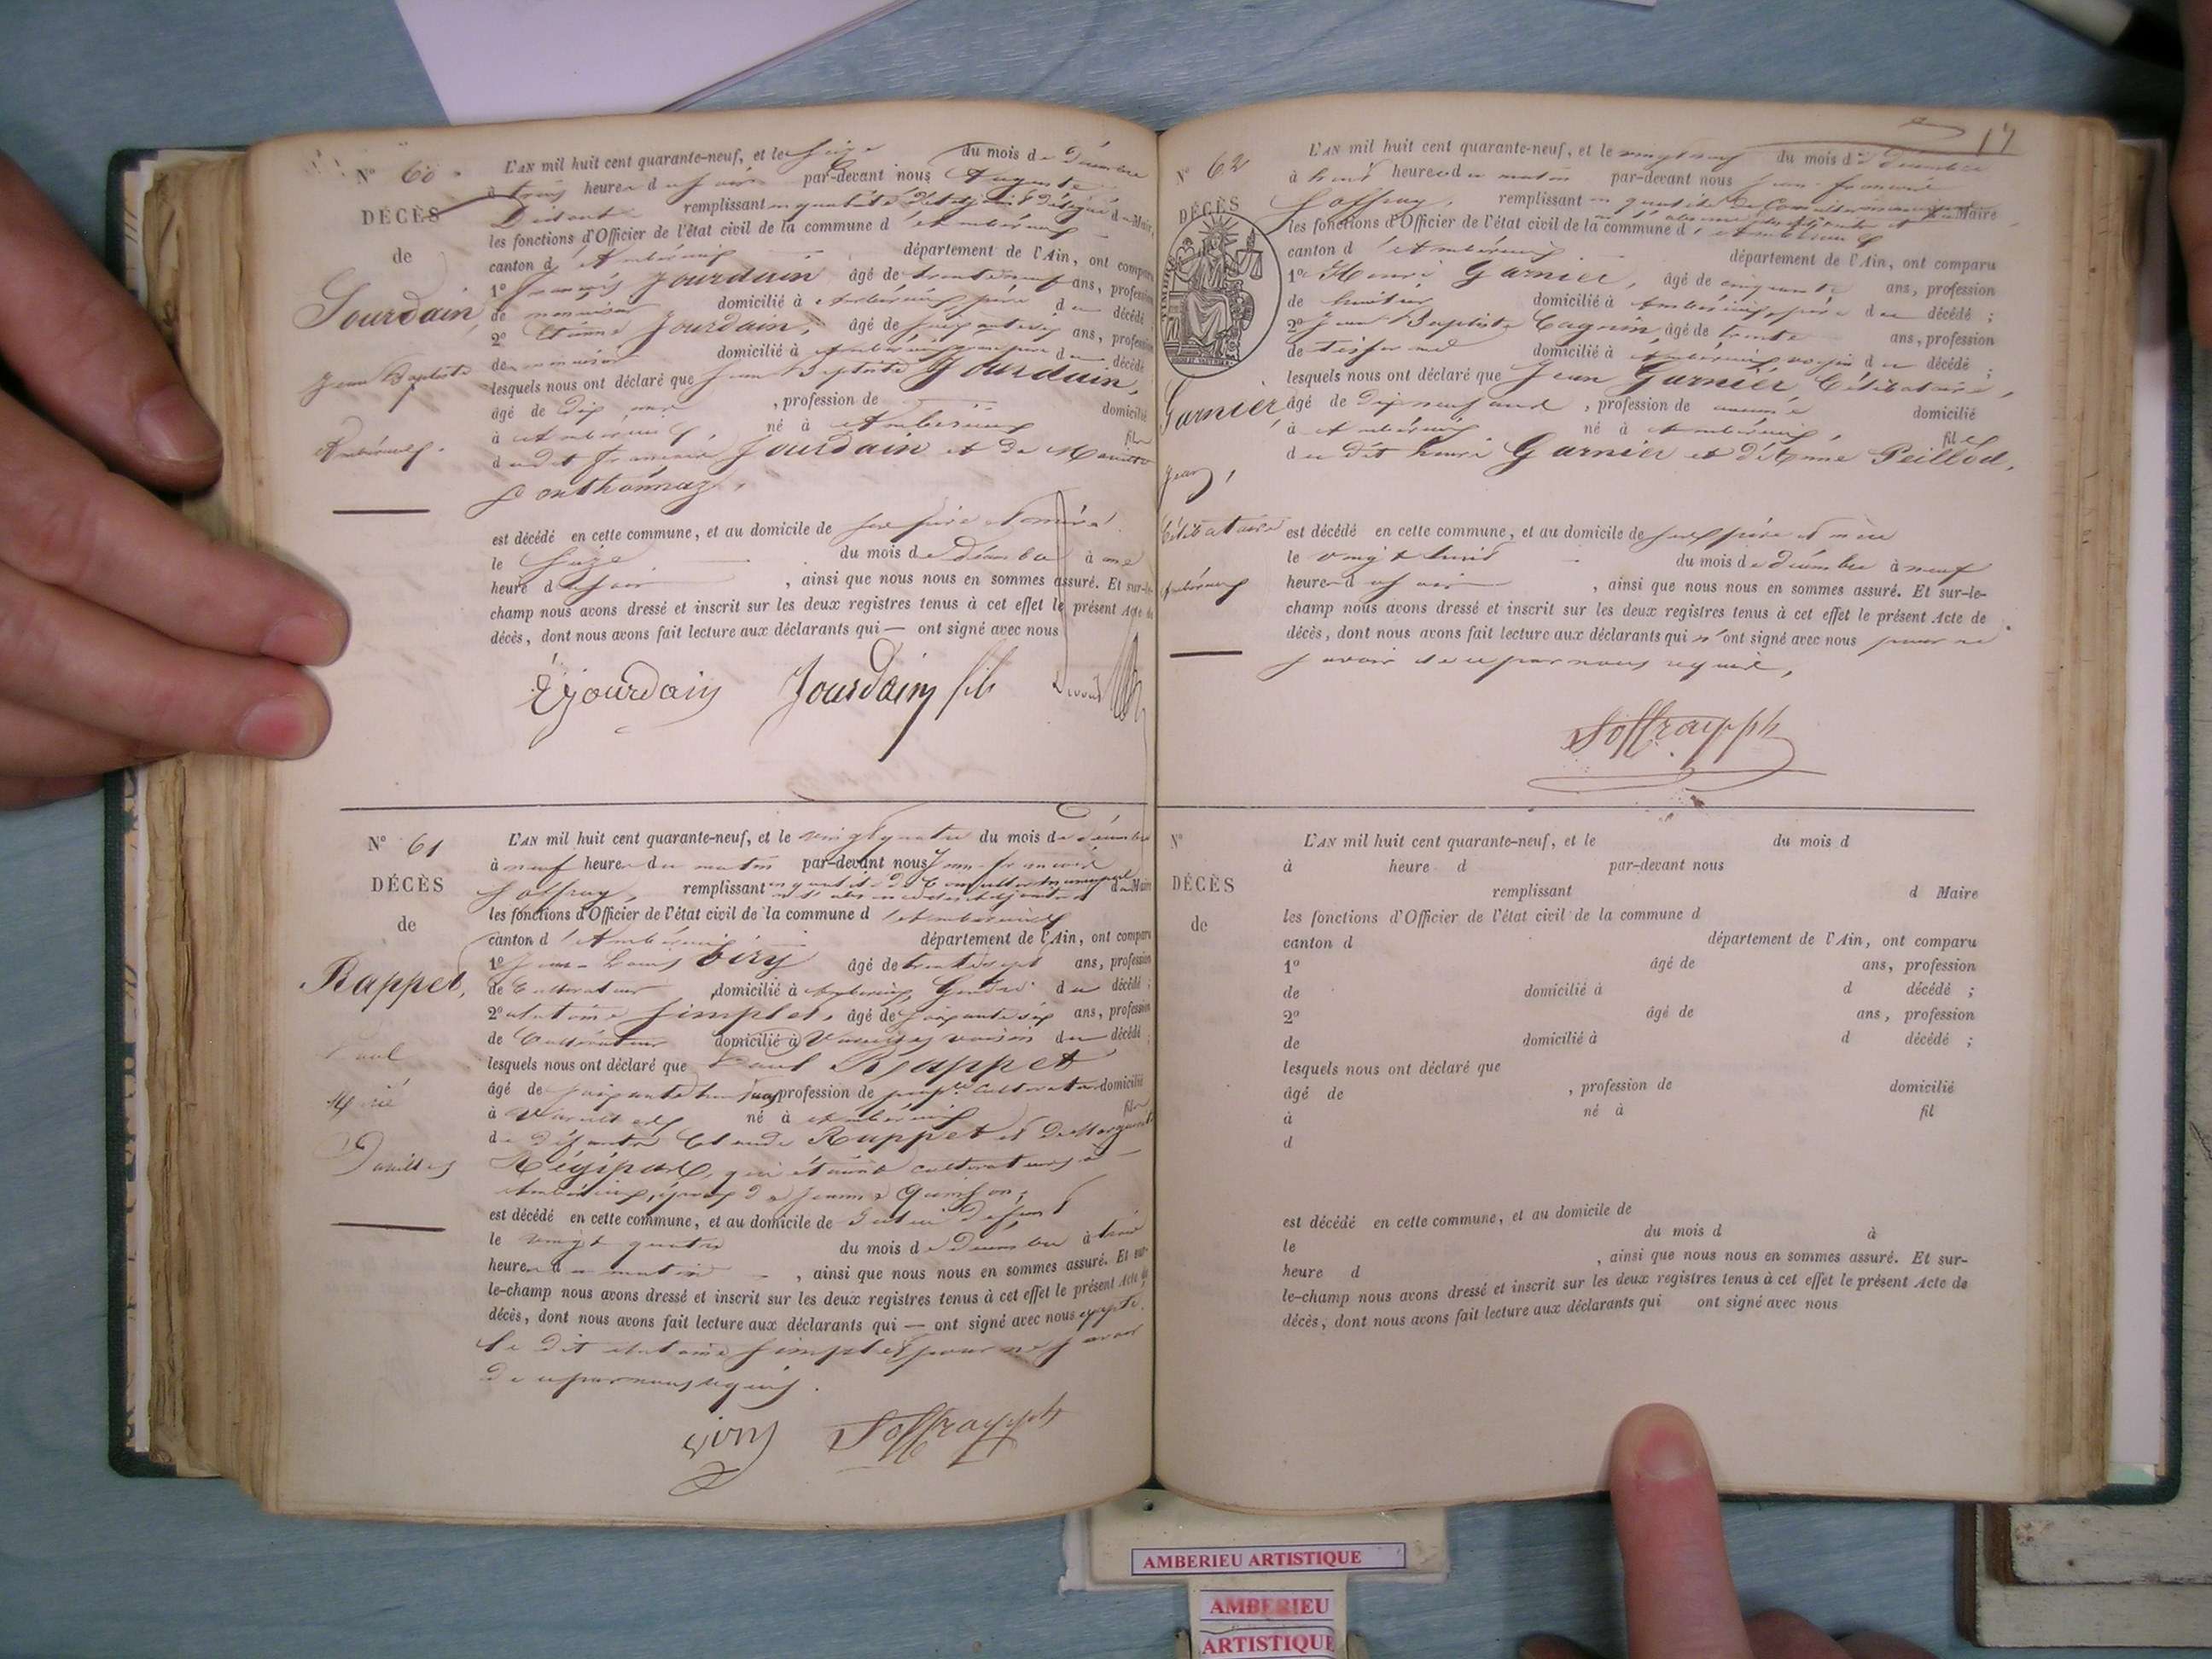 N° 60
DÉCÈS
de
Jourdain
Jean Baptiste
Ambérieux.
L'AN mil huit cent quarante-neuf, et le seize du mois de Décembre
à trois heures du soir par-devant nous Auguste
remplissant en qualité d'adjoint délégué du Maire,
les fonctions d'Officier de l'état civil de la commune d'Ambérieux
canton d'Ambérieux département de l'Ain, ont comparu
1° François Jourdain âgé de trente neuf ans, profession
de menuisier domicilié à Ambérieux, père du décédé
2° Etienne Jourdain, âgé de ans, profession
de menuisier domicilié à Ambérieux grand père du décédé
lesquels nous ont déclaré que Jean Baptiste Jourdain,
âgé de dix , profession de domicilié
à Ambérieux, né à Ambérieux fils
dudit François Jourdain et de
Ponthonnaz,
est décédé en cette commune, et au domicile de ses père et mère
le seize du mois de Décembre à une
heure du soir , ainsi que nous nous en sommes assuré. Et sur-le-
champ nous avons dressé et inscrit sur les deux registres tenus à cet effet le présent Acte de
décès, dont nous avons fait lecture aux déclarants qui — ont signé avec nous
Ejourdain Jourdain fils
N° 61
DÉCÈS
de
Rappet,
Paul
Marié
Vareilles
L'AN mil huit cent quarante-neuf, et le vingt quatre du mois de décembre
à neuf heures du matin par-devant nous Jean-françois
Soffray, remplissant en qualité de Conseiller Municipal du Maire
les fonctions d'Officier de l'état civil de la commune d'Ambérieux
canton d'Ambérieux département de l'Ain, ont comparu
1° Jean-Louis Viry âgé de trente sept ans, profession
de Cultivateur domicilié à Ambérieux, Gendre du décédé;
2° Antoine Simplet, âgé de soixante six ans, profession
de Cultivateur domicilié à Vareilles voisin du décédé
lesquels nous ont déclaré que Paul Rappet
âgé de soixante ans, profession de propre cultivateur domicilié
à Vareilles né à Ambérieux fils
de défunts Claude Rappet et de Marguerite
qui étaient cultivateurs à
Ambérieux, époux de Jeanne
est décédé en cette commune, et au domicile de défunt
le vingt quatre du mois de Décembre à trois
heures du matin , ainsi que nous nous en sommes assuré. Et sur-
le-champ nous avons dressé et inscrit sur les deux registres tenus à cet effet le présent Acte de
décès, dont nous avons fait lecture aux déclarants qui — ont signé avec nous excepté
le dit Antoine Simplet pour ne savoir
de ce par nous requis.
Viry Soffray
17
N° 62
DÉCÈS
Garnier,
Jean,
Célibataire
Ambérieux
L'AN mil huit cent quarante-neuf, et le vingt neuf du mois de décembre
à huit heures du matin par-devant nous Jean-françois
Soffray, remplissant en qualité de Conseiller municipal du Maire
les fonctions d'Officier de l'état civil de la commune d'Ambérieux
canton d'Ambérieux département de l'Ain, ont comparu
1° Henri Garnier, âgé de cinquante ans, profession
de domicilié à Ambérieux, père du décédé ;
2° Jean Baptiste Cagnin âgé de trente ans, profession
de tisserand domicilié à Ambérieux voisin du décédé ;
lesquels nous ont déclaré que Jean Garnier Célibataire,
âgé de dix neuf ans , profession de domicilié
à Ambérieux né à Ambérieux, fils
du dit henri Garnier et d'Anne Peillod,
est décédé en cette commune, et au domicile de ses père et mère
le vingt huit du mois de décembre à neuf
heures du soir , ainsi que nous nous en sommes assuré. Et sur-le-
champ nous avons dressé et inscrit sur les deux registres tenus à cet effet le présent Acte de
décès, dont nous avons fait lecture aux déclarants qui n'ont signé avec nous pour ne
savoir de ce par nous requis,
Soffray
N°
DÉCÈS
de
L'AN mil huit cent quarante-neuf, et le du mois d
à heure d par-devant nous
remplissant d Maire
les fonctions d'Officier de l'état civil de la commune d
canton d département de l'Ain, ont comparu
1° âgé de ans, profession
de domicilié à d décédé ;
2° âgé de ans, profession
de domicilié à d décédé ;
lesquels nous ont déclaré que
âgé de , profession de domicilié
à né à fil
d
est décédé en cette commune, et au domicile de
le du mois d à
heure d , ainsi que nous nous en sommes assuré. Et sur-
le-champ nous avons dressé et inscrit sur les deux registres tenus à cet effet le présent Acte de
décès, dont nous avons fait lecture aux déclarants qui ont signé avec nous
AMBERIEU ARTISTIQUE
AMBERIEU
ARTISTIQUE